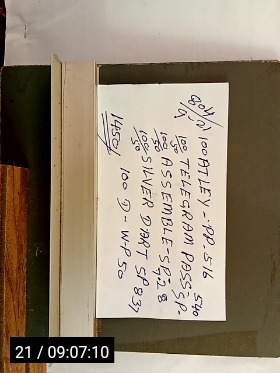 100 ATLEY - PP. 516
100/50 TELEGRAM PASS SP. 540
100/50 ASSEMBLE - SP. 728
100/50 SILVER DART SP 837
100 D - WP 50
1450/
21 / 09:07:10